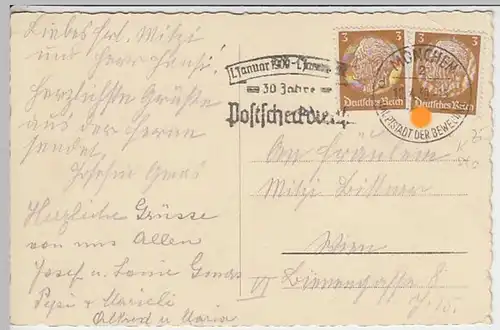 Liebes Frl. Mitzi
und Herr Hansi!
Herzlichste Grüsse
aus der Ferne
sendet
Josefine
Herzliche Grüsse
von uns Allen
Josef u.
Pepi & Mariedi
Alfred u Maria
1. Januar 1909 - 1. Januar
30 Jahre
Postscheckdienst
3 3
Deutsches Reich Deutsches Reich
MÜNCHEN
HAUPTSTADT DER BEWEGUNG
An Fräulein
Mitzi
Wien
VI Bienengasse 8